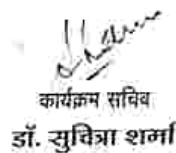 कार्यक्रम सचिव
डॉ. सुचित्रा शर्मा